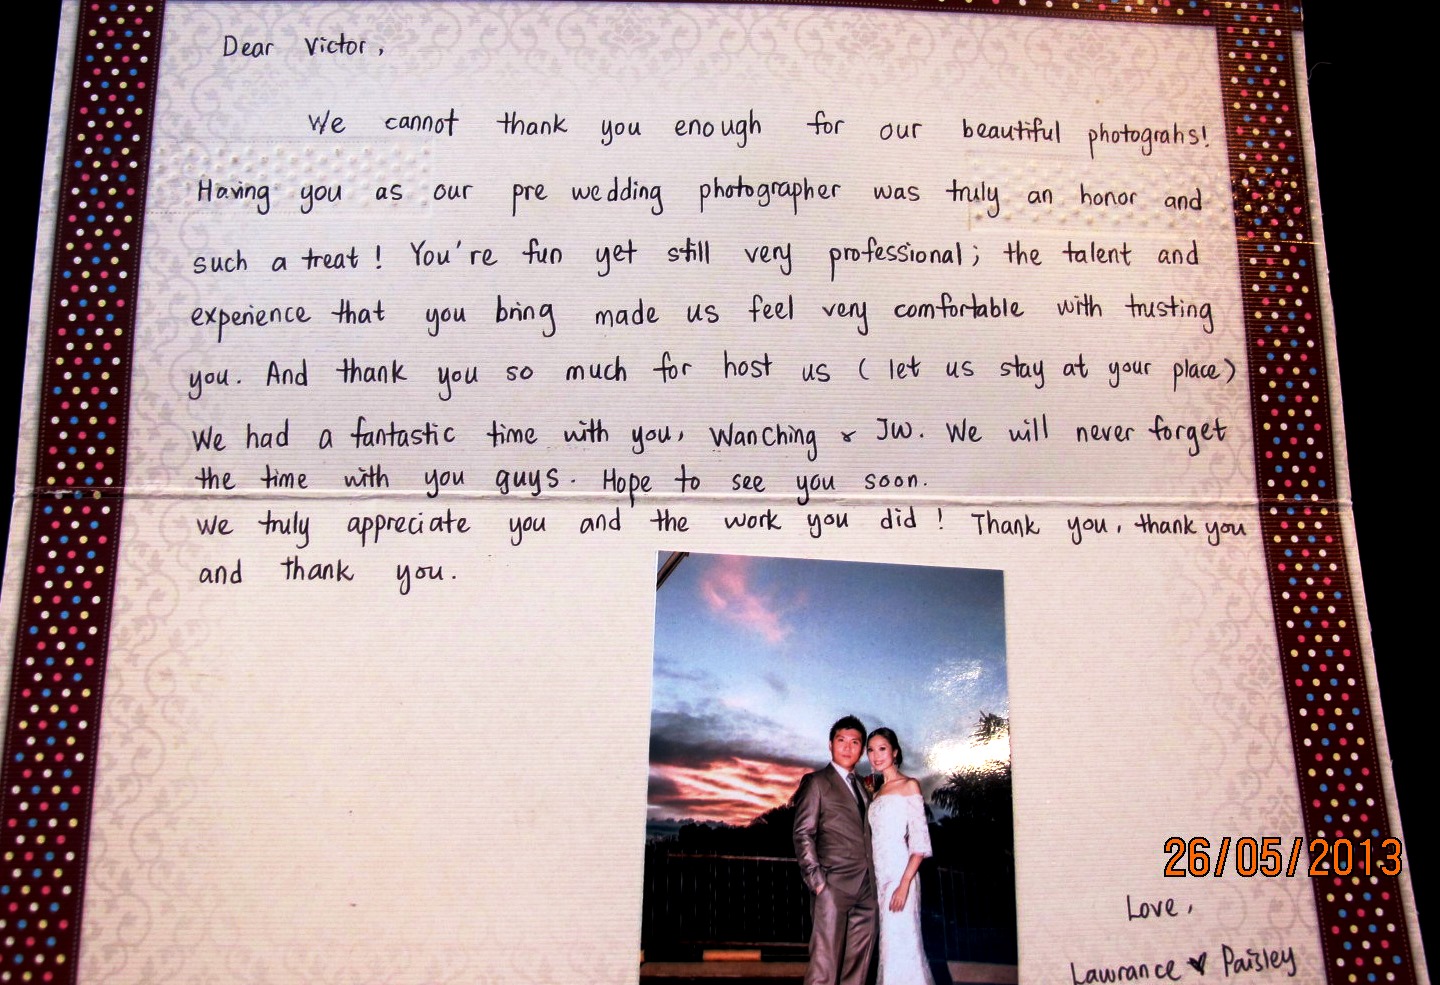 Dear Victor,
We cannot thank you enough for our beautiful photograhs!
Having you as our pre wedding photographer was truly an honor and
such a treat! You're fun yet still very professional; the talent and
experience that you bring made us feel very comfortable with trusting
you. And thank you so much for host us (let us stay at your place)
We had a fantastic time with you, WanChing & JW. We will never forget
the time with you guys. Hope to see you soon.
We truly appreciate you and the work you did! Thank you, thank you
and thank you.
26/05/2013
Love,
Lawrance ♥ Paisley